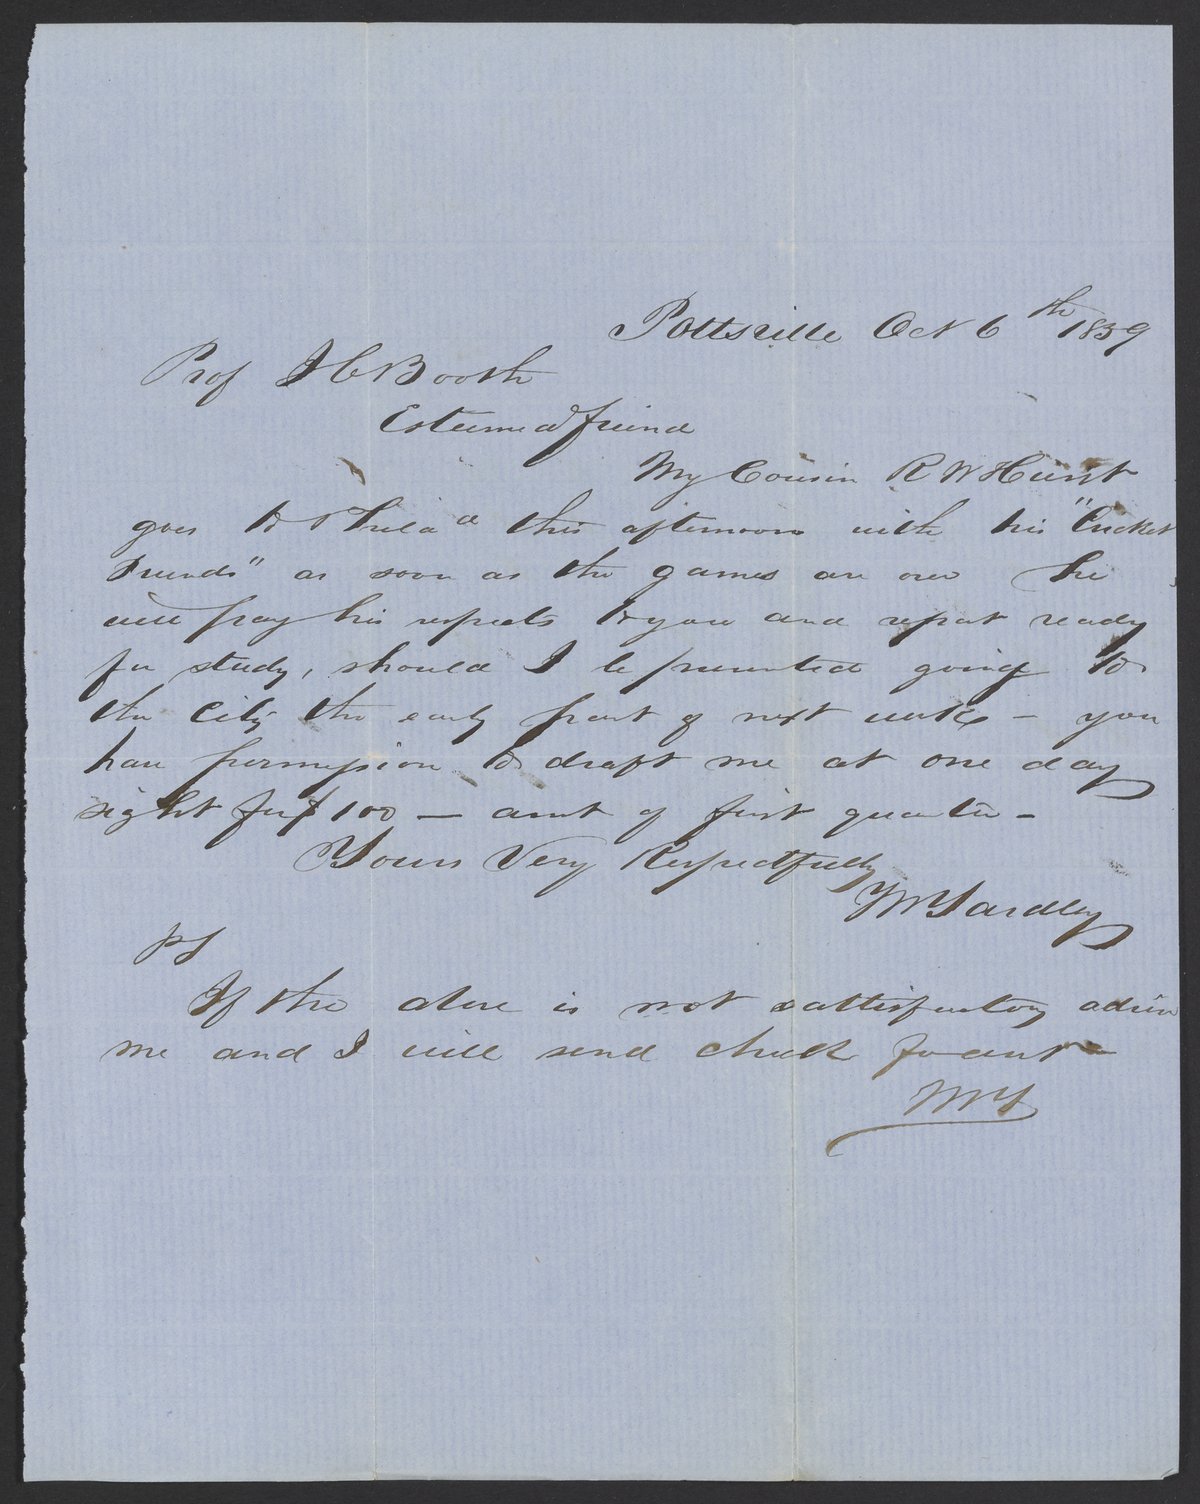 Pottsville Oct 6th 1859
Prof J C Booth
Esteemed friend
My Cousin R W Hunt
goes to Philada this afternoon with his "Cricket
Friends" as soon as the games are over he
will pay his respects to you and report ready
for study, should I be prevented going to
the City the early part of next week - you
have permission to draft me at one day
sight for $100 — amt of first quarter -
Yours Very Respectfully
Wm Yardley
PS
If the above is not sattisfactory advise
me and I will send check for amt -
WY